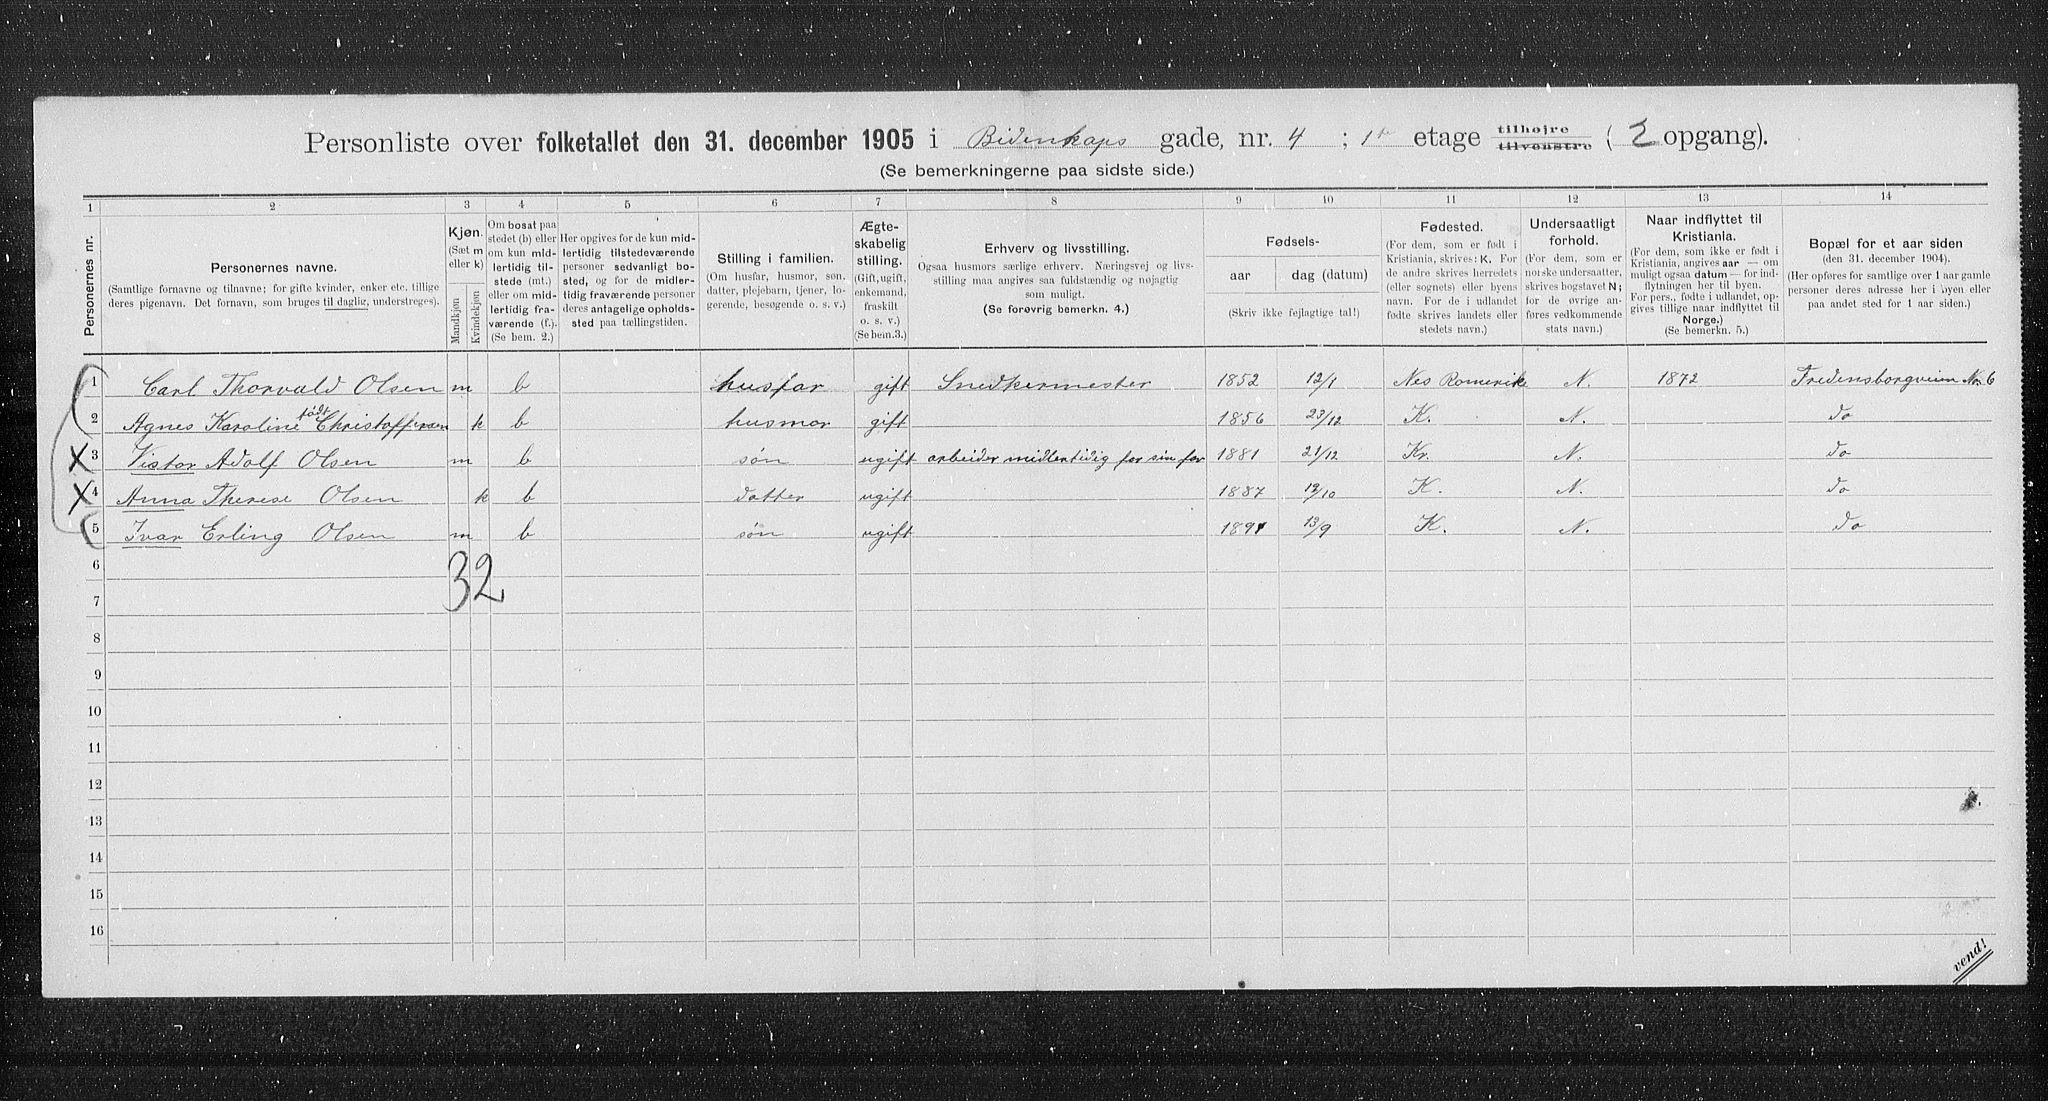 Personliste over folketallet den 31. december 1905 i Bidenkaps gade, nr. 4 ; 1ste etage tilhøjre tilvenstre ( 2 opgang).
(Se bemerkningerne paa sidste side.)
1 2 3 4 5 6 7 8 9 10 11 12 13 14
Personernes nr.
Personernes navne.
(Samtlige fornavne og tilnavne; for gifte kvinder, enker etc. tillige
deres pigenavn. Det fornavn, som bruges til daglig, understreges).
Kjøn.
(Sæt m
eller k)
Mandkjøn
Kvindekjøn
Om bosat paa
stedet (b) eller
om kun mid-
lertidig til-
stede (mt.)
eller om mid-
lertidig fra-
værende (f.).
(Se bem. 2.)
Her opgives for de kun mid-
lertidig tilstedeværende
personer sedvanligt bo-
sted, og for de midler-
tidig fraværende personer
deres antagelige opholds-
sted paa tællingstiden.
Stilling i familien.
(Om husfar, husmor, søn,
datter, plejebarn, tjener, lo-
gerende, besøgende o. s. v.)
Ægte-
skabelig
stilling.
(Gift, ugift,
enkemand,
fraskilt
o. s. v.)
(Se bem.3.)
Erhverv og livsstilling.
Ogsaa husmors særlige erhverv. Næringsvej og livs-
stilling maa angives saa fuldstændig og nøjagtig
som muligt.
(Se forøvrig bemerkn. 4.)
Fødsels-
aar dag (datum)
(Skriv ikke fejlagtige tal!)
Fødested.
(For dem, som er født i
Kristiania, skrives: K. For
de andre skrives herredets
(eller sognets) eller byens
navn. For de i udlandet
fødte skrives landets eller
stedets navn.)
Undersaatligt
forhold.
(For dem, som er
norske undersaatter,
skrives bogstavet N;
for de øvrige an-
føres vedkommende
stats navn.)
Naar indflyttet til
Kristiania.
(For dem, som ikke er født i
Kristiania, angives aar — om
muligt ogsaa datum — for ind-
flytningen her til byen.
For pers., fødte i udlandet, op-
gives tillige naar indflyttet til
Norge.)
(Se bemerkn. 5.)
Bopæl for et aar siden
(den 31. december 1904).
(Her opføres for samtlige over 1 aar gamle
personer deres adresse her i byen eller
paa andet sted for 1 aar siden.)
1 Carl Thorvald Olsen m b husfar gift Snedkermester 1852 12/1 Nes Romerike N. 1872 Fredensborgveien No. 6
2 Agnes Karoline født Christoffersen k b husmor gift 1856 23/12 K. N. do
X 3 Victor Adolf Olsen m b søn ugift arbeider midlertidig for sin far 1881 21/12 Kr. N. do
X 4 Anna Therese Olsen k b datter ugift 1887 12/10 K. N. do
5 Ivar Erling Olsen m b søn ugift 1891 13/9 K. N. do
32
6
7
8
9
10
11
12
13
14
15
16
vend!